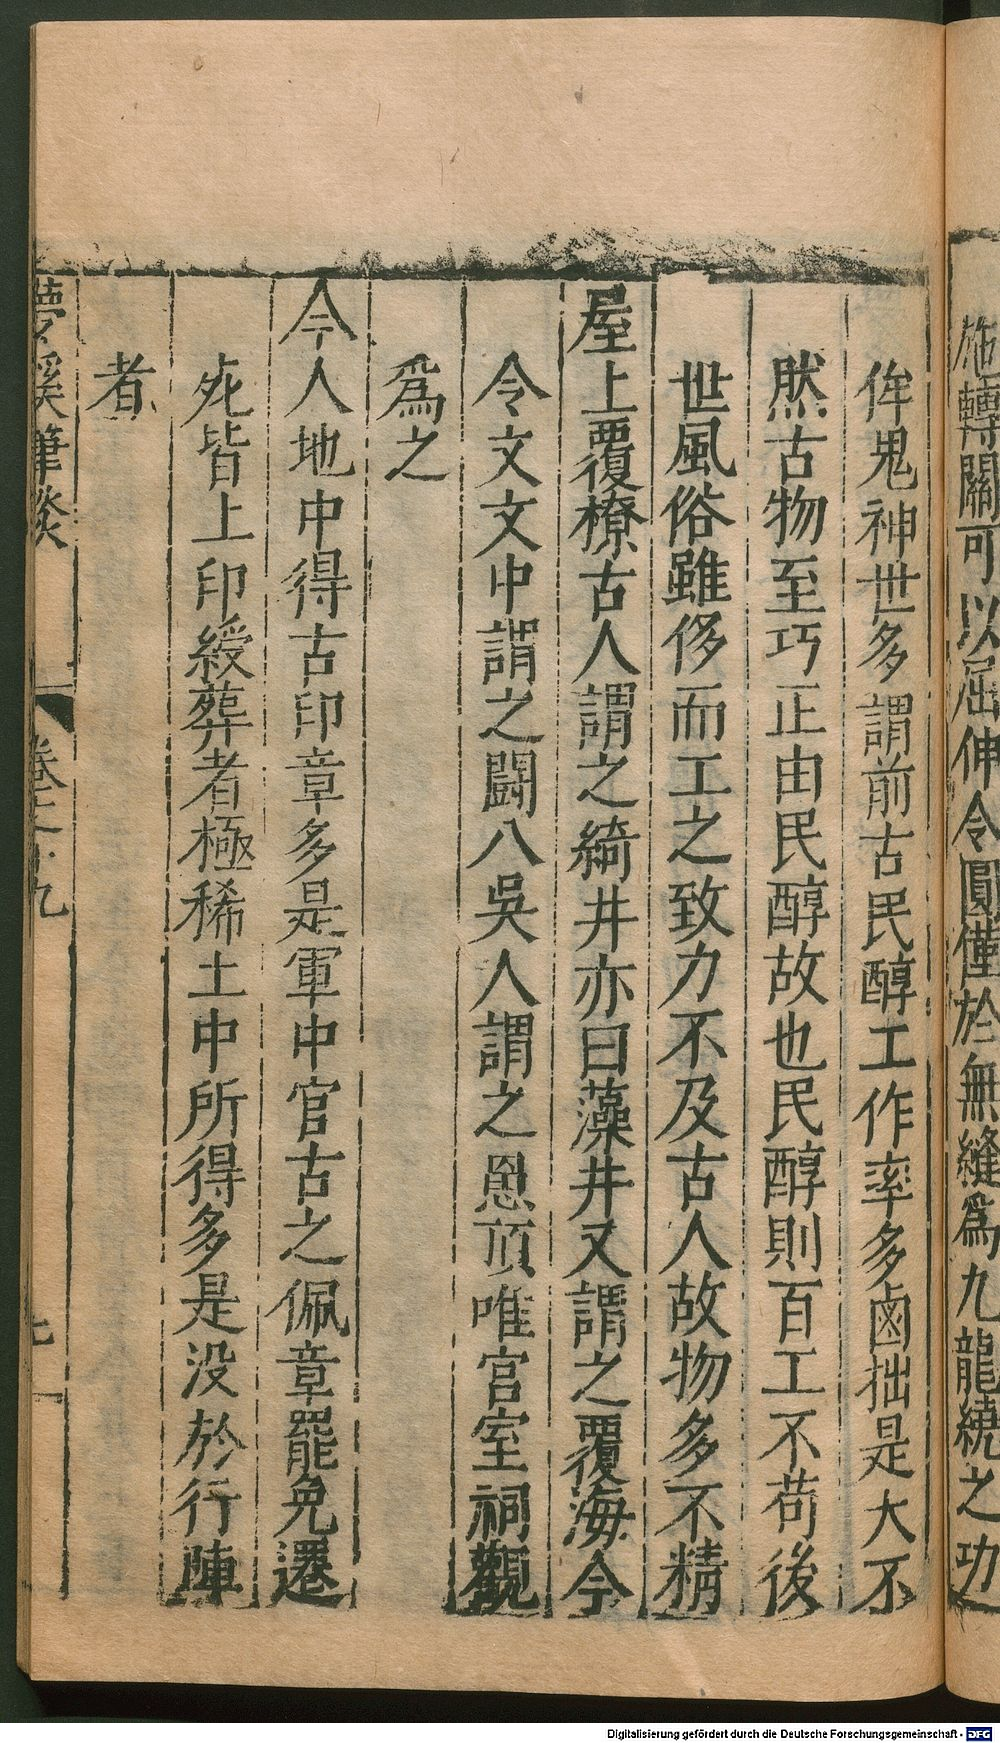 施轉關可以屈伸令圓僅於無縫爲九龍繞之功
侔鬼神世多謂前古民醇工作率多鹵拙是大不
然古物至巧正由民醇故也民醇則百工不苟後
世風俗雖侈而工之致力不及古人故物多不精
屋上覆橑古人謂之綺井亦曰藻井又謂之覆海今
令文文中謂之闘八吳人謂之罳頂唯宮室祠觀
爲之
今人地中得古印章多是軍中官古之佩章罷免遷
死皆上印綬葬者極稀土中所得多是没於行陣
者
夢溪筆談 卷之十九
Digitalisierung gefördert durch die Deutsche Forschungsgemeinschaft - DFG